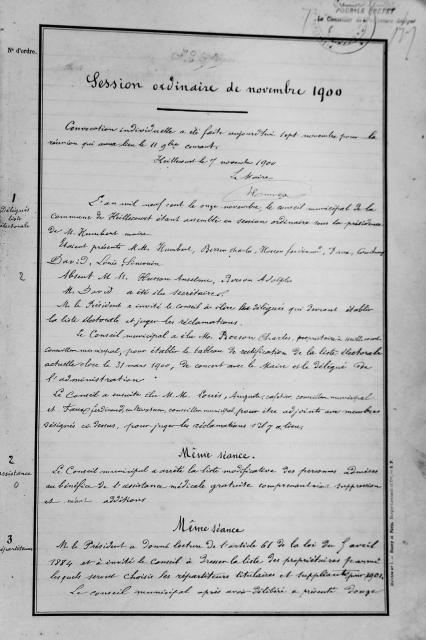 POUR LE PREFET
Le Conseiller de Préfecture délégué
N° d'ordre.
Session ordinaire de novembre 1900
Convocation individuelle a été faite aujourd'hui sept novembre pour la
réunion qui aura lieu le 11 9bre courant.
le 7 novembre 1900
Le Maire
1
Délégués
liste
électorale
L'an mil neuf cent le onze novembre, le conseil municipal de la
commune de étant assemblé en session ordinaire sous la présidence
de M. Humbert maire
Etaient présents M.M. Humbert, Charles,
David, Louis
2
Absent M.M. Husson Anselme, Adolphe
M. David a été élu secrétaire.
M. le Président a invité le conseil à élire les délégués qui devront établir
la liste électorale et juger les réclamations.
Le Conseil municipal a élu M. Charles, propriétaire à
conseiller municipal, pour établir le tableau de rectification de la liste électorale
actuelle close le 31 mars 1900, de concert avec le Maire et le délégué de
l'administration
Le Conseil a ensuite élu M.M. Louis, Auguste, conseiller municipal
et Ferdinand, cultivateur, conseiller municipal pour être adjoints aux membres
désignés ci dessus, pour juger les réclamations s'il y a lieu.
2
assistance
0
Même séance.
Le Conseil municipal a arrêté la liste modificative des personnes admises
au bénéfice de l'assistance médicale gratuite comprenant suppression
et néant additions
3
répartiteurs
Même séance
M. le Président a donné lecture de l'article 61 de la loi du 5 avril
1884 et a invité le Conseil à dresser la liste des propriétaires parmi
lesquels seront choisis les répartiteurs titulaires et suppléants pour 1901.
Le conseil municipal après avoir délibéré a présenté douze